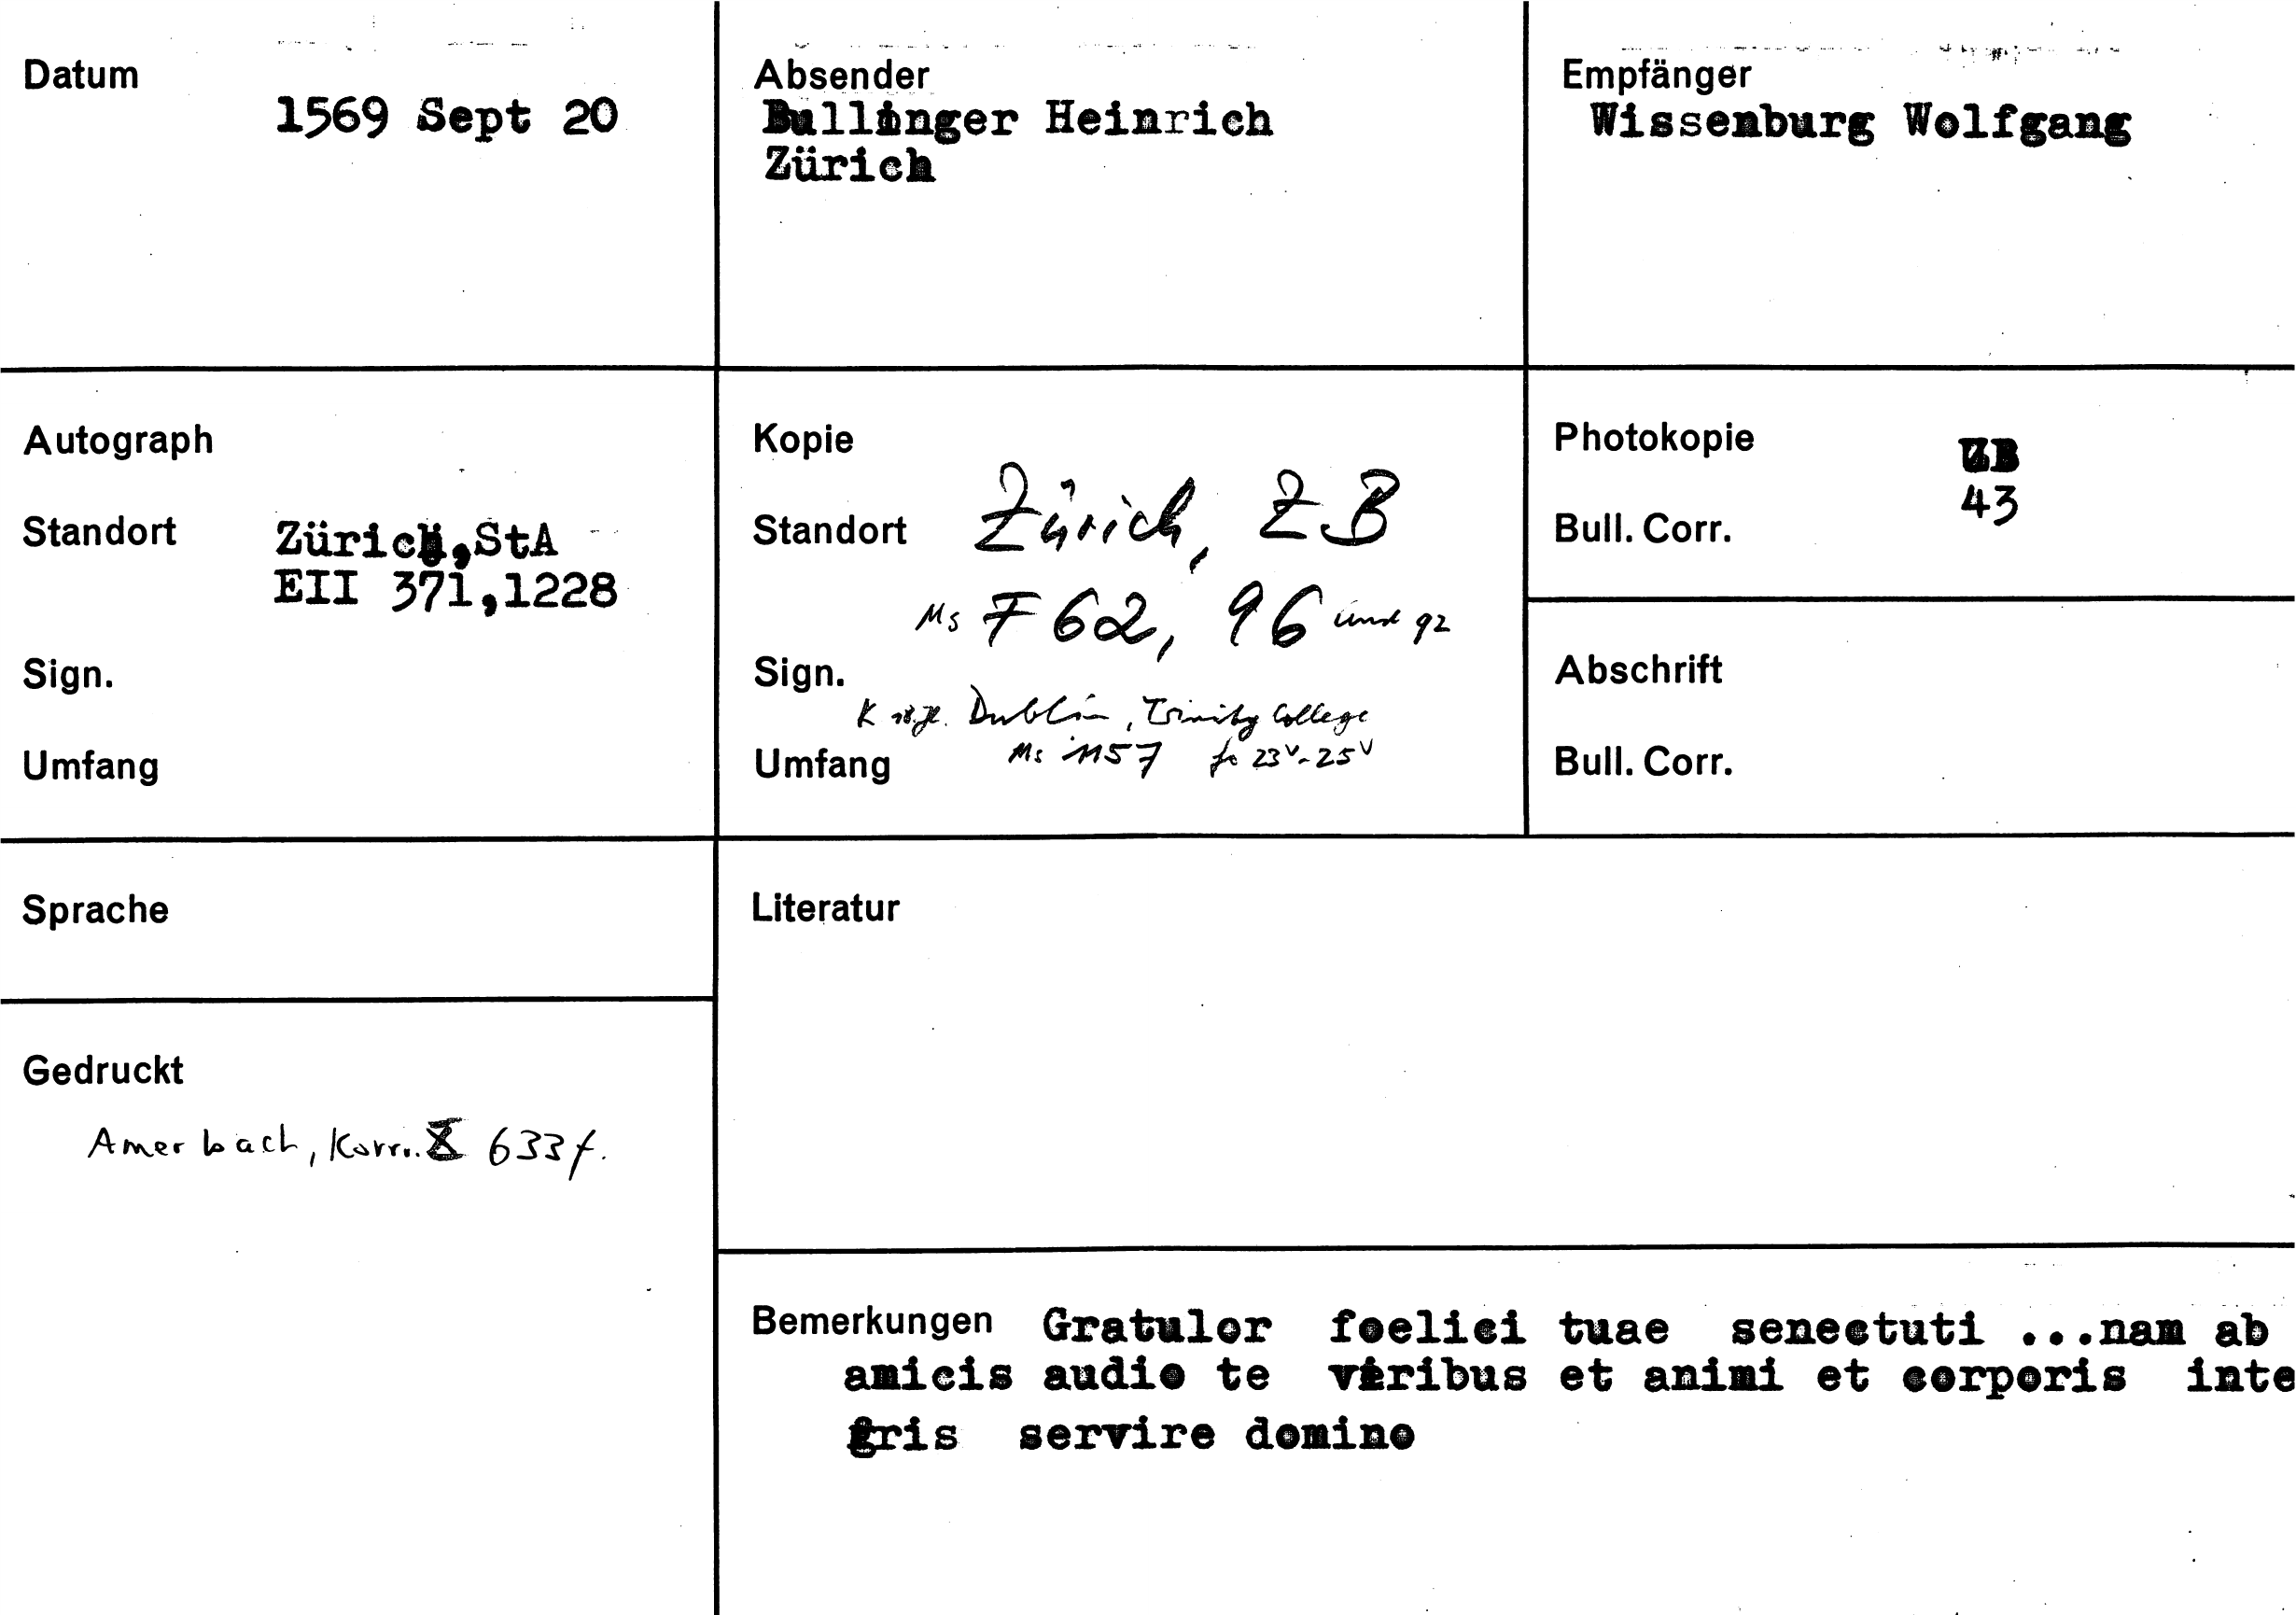 Datum
1569 Sept 20
Absender
Bullinger Heinrich
Zürich
Empfänger
Wissenburg Wolfgang
Autograph
Standort
Zürich,StA
EII 371,1228
Sign.
Umfang
Kopie
Standort Zürich, ZB
Ms F 62, 96 und 92
Sign.
K 18.Jh. Dublin, Trinity College
Umfang Ms 1157 fo 23v-25v
Photokopie ZB
43
Bull. Corr.
Abschrift
Bull. Corr.
Sprache
Literatur
Gedruckt
Amerbach, Korr. X 633f.
Bemerkungen Gratulor foelici tuae senectuti ...nam ab
amicis audio te viribus et animi et corporis inte
gris servire domino